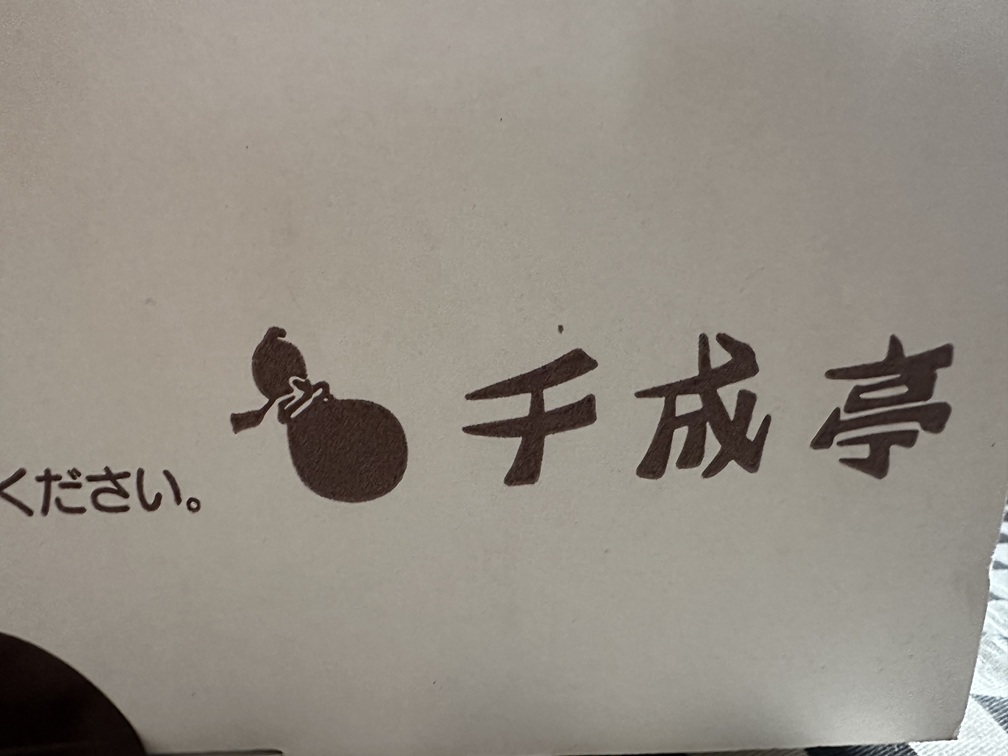 ください。
千成亭